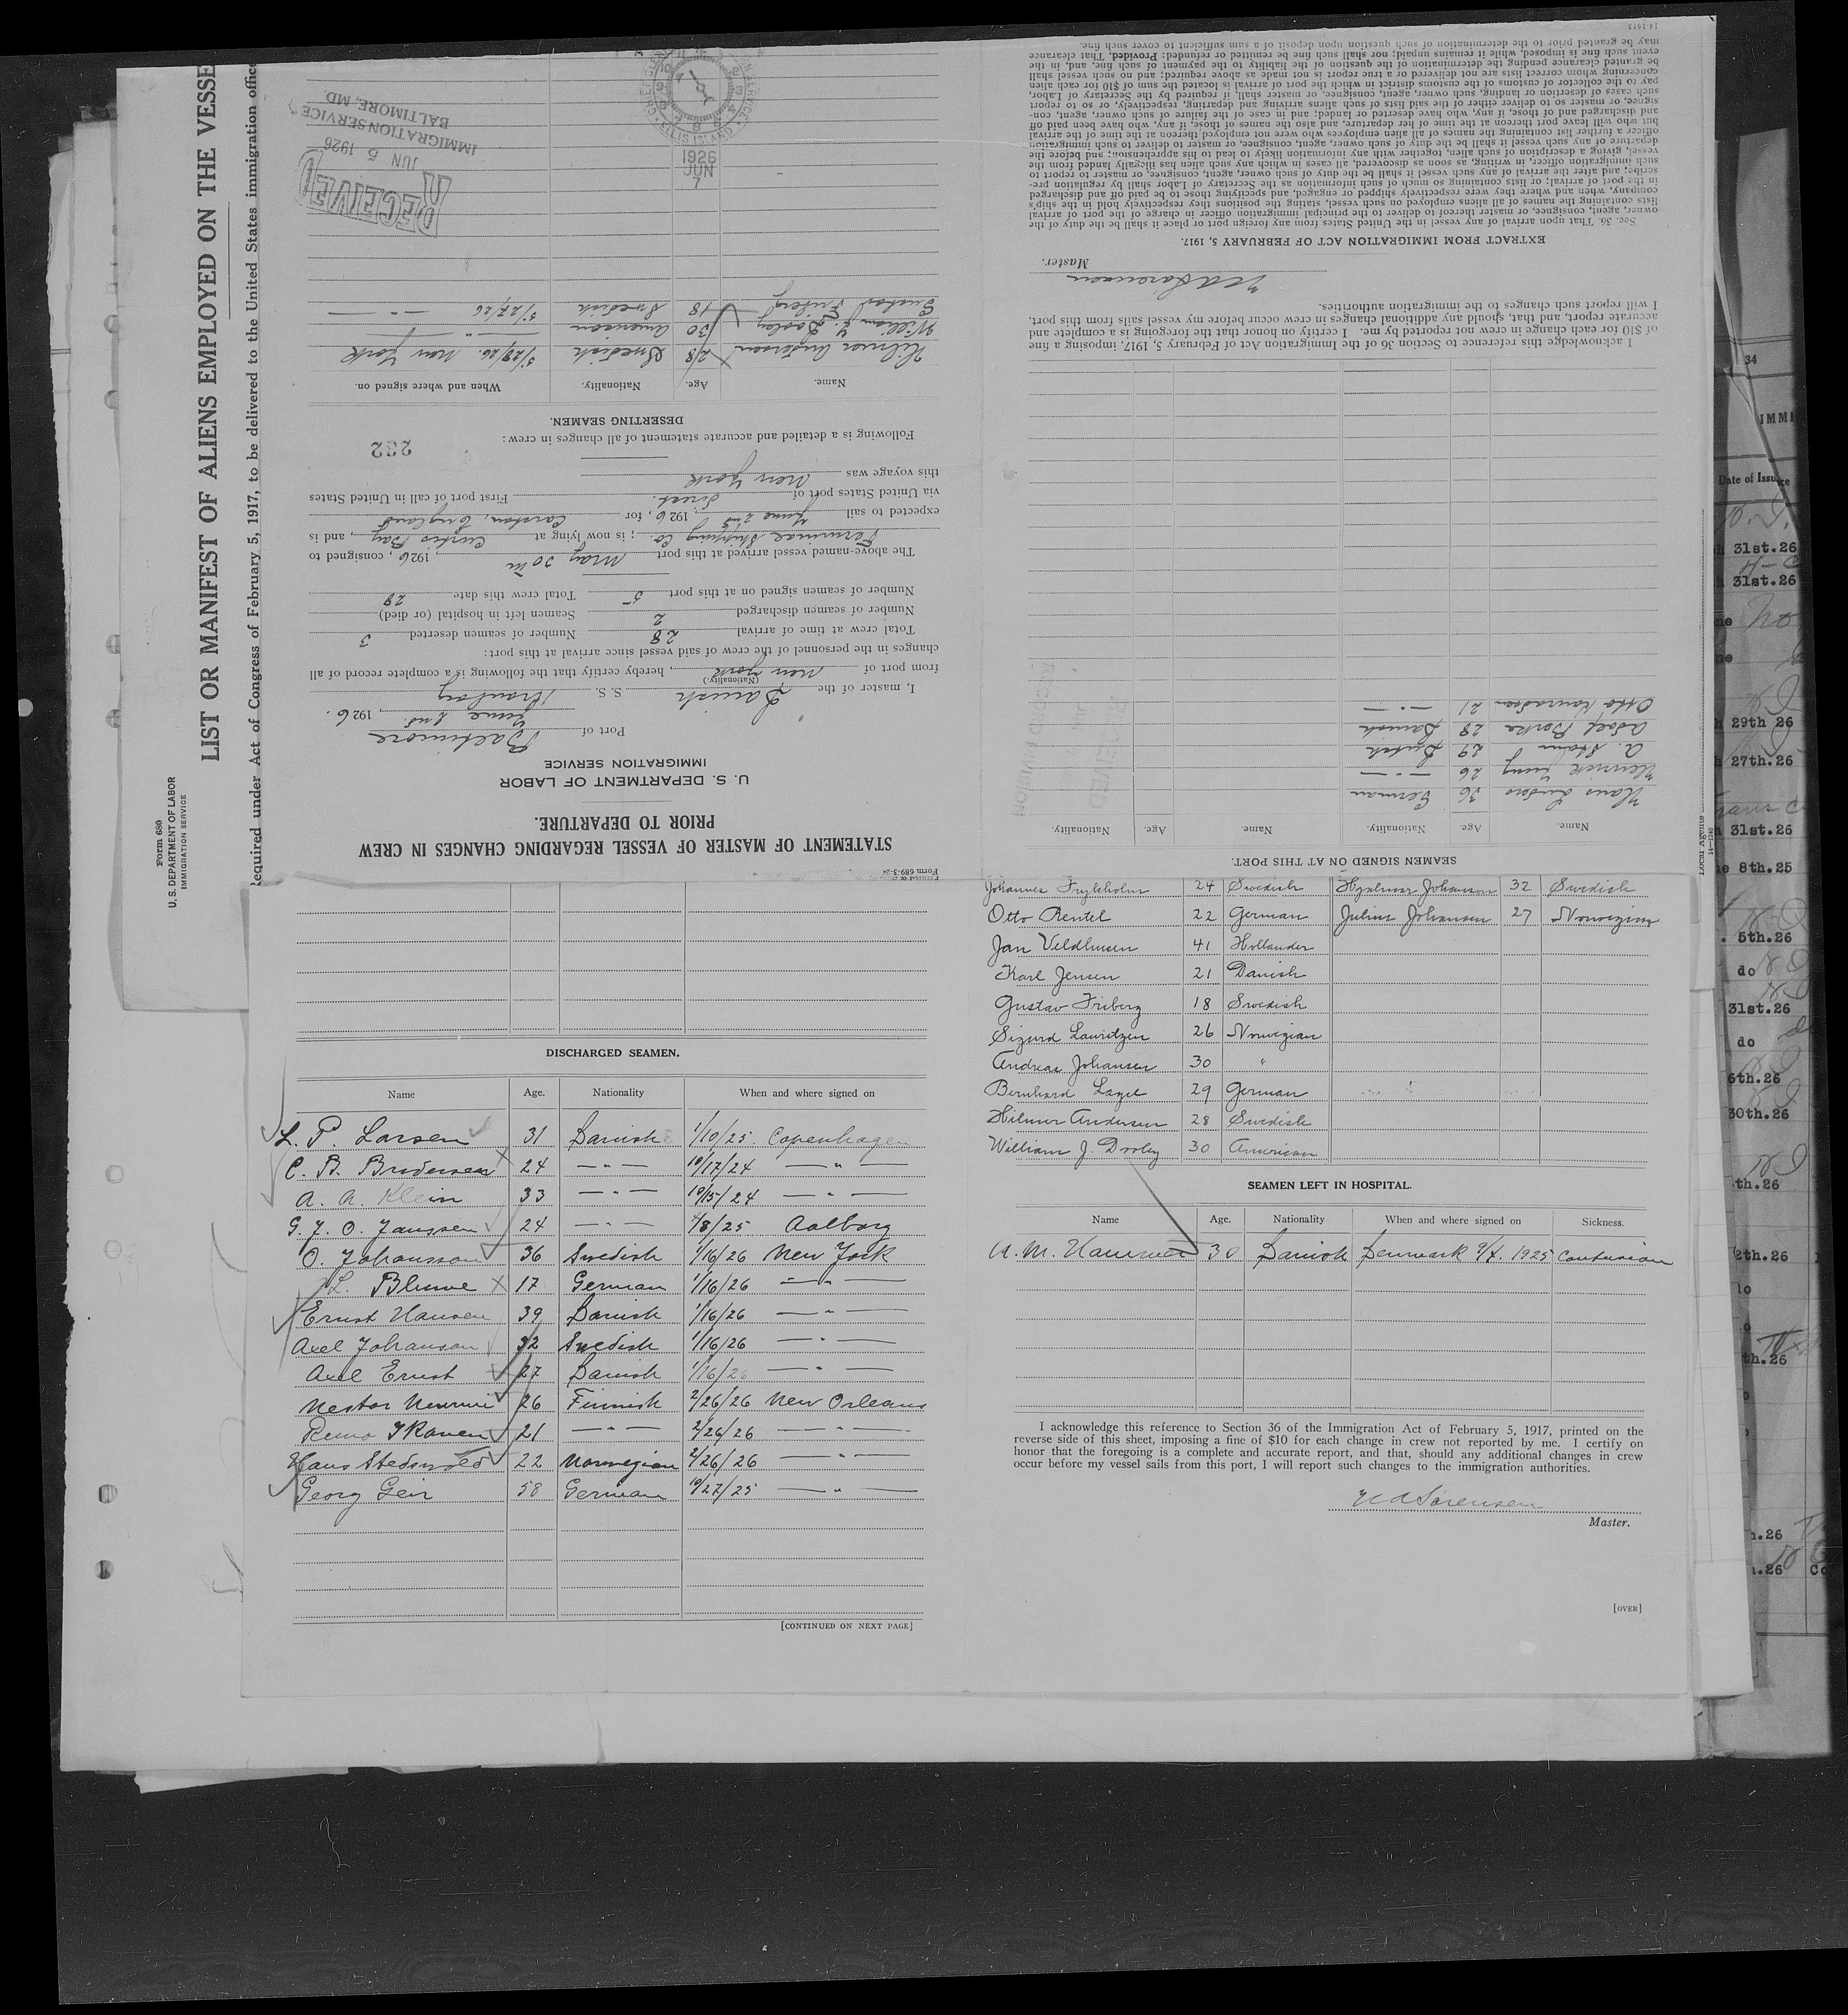 Form 680
U. S. DEPARTMENT OF LABOR
IMMIGRATION SERVICE
LIST OR MANIFEST OF ALIENS EMPLOYED ON THE VESSE
Required under Act of Congress of February 5, 1917, to be delivered to the United States immigration office
STATEMENT OF MASTER OF VESSEL REGARDING CHANGES IN CREW
PRIOR TO DEPARTURE.
U. S. DEPARTMENT OF LABOR
IMMIGRATION SERVICE
Port of Baltimore
June 2nd, 1926.
I, master of the Danish S. S.
(Nationality)
from port of New York, hereby certify that the following is a complete record of all
changes in the personnel of the crew of said vessel since arrival at this port:
Total crew at time of arrival 28 Number of seamen deserted 3
Number of seamen discharged 2 Seamen left in hospital (or died)
Number of seamen signed on at this port 5 Total crew this date 28
The above-named vessel arrived at this port May 30th, 1926, consigned to
Terminal Shipping Co.; is now lying at Curtis Bay, and is
expected to sail June 2nd, 1926, for Garston, England
via United States port of direct. First port of call in United States
this voyage was New York
Following is a detailed and accurate statement of all changes in crew:
232
DESERTING SEAMEN.
Name. Age. Nationality. When and where signed on.
Hilmar Anderson 28 Swedish 5/28/26. New York
William J. Dooley 30 American
Gustav Friberg 18 Swedish 5/27/26
RECEIVED
JUN 5 1926
IMMIGRATION SERVICE
BALTIMORE, MD.
1926
JUN
7
ELLIS ISLAND
SEAMEN SIGNED ON AT THIS PORT.
Name. Age. Nationality. Name. Age. Nationality.
Hans Luders 36 German
Heinrich Jung 26 — " —
A. Stam 29 Dutch
Aksel Borke 28 Danish
Otto Konradsen 21 — " —
I acknowledge this reference to Section 36 of the Immigration Act of February 5, 1917, imposing a fine
of $10 for each change in crew not reported by me. I certify on honor that the foregoing is a complete and
accurate report, and that, should any additional changes in crew occur before my vessel sails from this port,
I will report such changes to the immigration authorities.
Sorensen
Master.
EXTRACT FROM IMMIGRATION ACT OF FEBRUARY 5, 1917.
Sec. 36. That upon arrival of any vessel in the United States from any foreign port or place it shall be the duty of the
owner, agent, consignee, or master thereof to deliver to the principal immigration officer in charge of the port of arrival
lists containing the names of all aliens employed on such vessel, stating the positions they respectively hold in the ship's
company, when and where they were respectively shipped or engaged, and specifying those to be paid off and discharged
in the port of arrival; or lists containing so much of such information as the Secretary of Labor shall by regulation pre-
scribe; and after the arrival of any such vessel it shall be the duty of such owner, agent, consignee, or master to report to
such immigration officer, in writing, as soon as discovered, all cases in which any such alien has illegally landed from the
vessel, giving a description of such alien, together with any information likely to lead to his apprehension; and before the
departure of any such vessel it shall be the duty of such owner, agent, consignee, or master to deliver to such immigration
officer a further list containing the names of all alien employees who were not employed thereon at the time of the arrival
but who will leave port thereon at the time of her departure, and also the names of those, if any, who have been paid off
and discharged and of those, if any, who have deserted or landed; and in case of the failure of such owner, agent, con-
signee, or master so to deliver either of the said lists of such aliens arriving and departing, respectively, or so to report
such cases of desertion or landing, such owner, agent, consignee, or master shall, if required by the Secretary of Labor,
pay to the collector of customs of the customs district in which the port of arrival is located the sum of $10 for each alien
concerning whom correct lists are not delivered or a true report is not made as above required; and no such vessel shall
be granted clearance pending the determination of the question of the liability to the payment of such fine, and, in the
event such fine is imposed, while it remains unpaid; nor shall such fine be remitted or refunded: Provided, That clearance
may be granted prior to the determination of such question upon deposit of a sum sufficient to cover such fine.
DISCHARGED SEAMEN.
Name Age. Nationality When and where signed on
L. P. Larsen 31 Danish 1/10/25. Copenhagen
C. B. Brodersen 24 — " — 10/17/24 — " —
A. A. Klein 33 — " — 10/15/24 — " —
G. J. O. Janssen 24 — " — 4/8/25 Aalborg
O. Johansson 36 Swedish 1/16/26 New York
L. Blume 17 German 1/16/26 — " —
Ernst Hansen 39 Danish 1/16/26 — " —
Axel Johanson 32 Swedish 1/16/26 — " —
Axel Ernst 27 Danish 1/16/26 — " —
Nestor 26 Finnish 2/26/26 New Orleans
21 — " — 2/26/26 — " —
Hans 22 Norwegian 2/26/26 — " —
Georg Geir 58 German 10/27/25 — " —
[CONTINUED ON NEXT PAGE]
Johannes Frykholm 24 Swedish Hjalmar Johanson 32 Swedish
Otto Rentel 22 German Julius Johansen 27 Norwegian
Jan Veldhusen 41 Hollander
Karl Jensen 21 Danish
Gustav Friberg 18 Swedish
Sigurd Lauritzen 26 Norwegian
Andreas Johansen 30 "
Bernhard Lagel 29 German
Hilmer Andersen 28 Swedish
William J. Dooley 30 American
SEAMEN LEFT IN HOSPITAL.
Name Age. Nationality When and where signed on Sickness.
A. M. Hammer 30 Danish Denmark 9/4. 1925 Contusion
I acknowledge this reference to Section 36 of the Immigration Act of February 5, 1917, printed on the
reverse side of this sheet, imposing a fine of $10 for each change in crew not reported by me. I certify on
honor that the foregoing is a complete and accurate report, and that, should any additional changes in crew
occur before my vessel sails from this port, I will report such changes to the immigration authorities.
Sorensen
Master.
[OVER]
34
IMMI
Date of Issuance
31st.26
31st.26
29th 26
27th.26
31st.26
8th.25
5th.26
do
31st.26
do
6th.26
30th.26
th.26
th.26